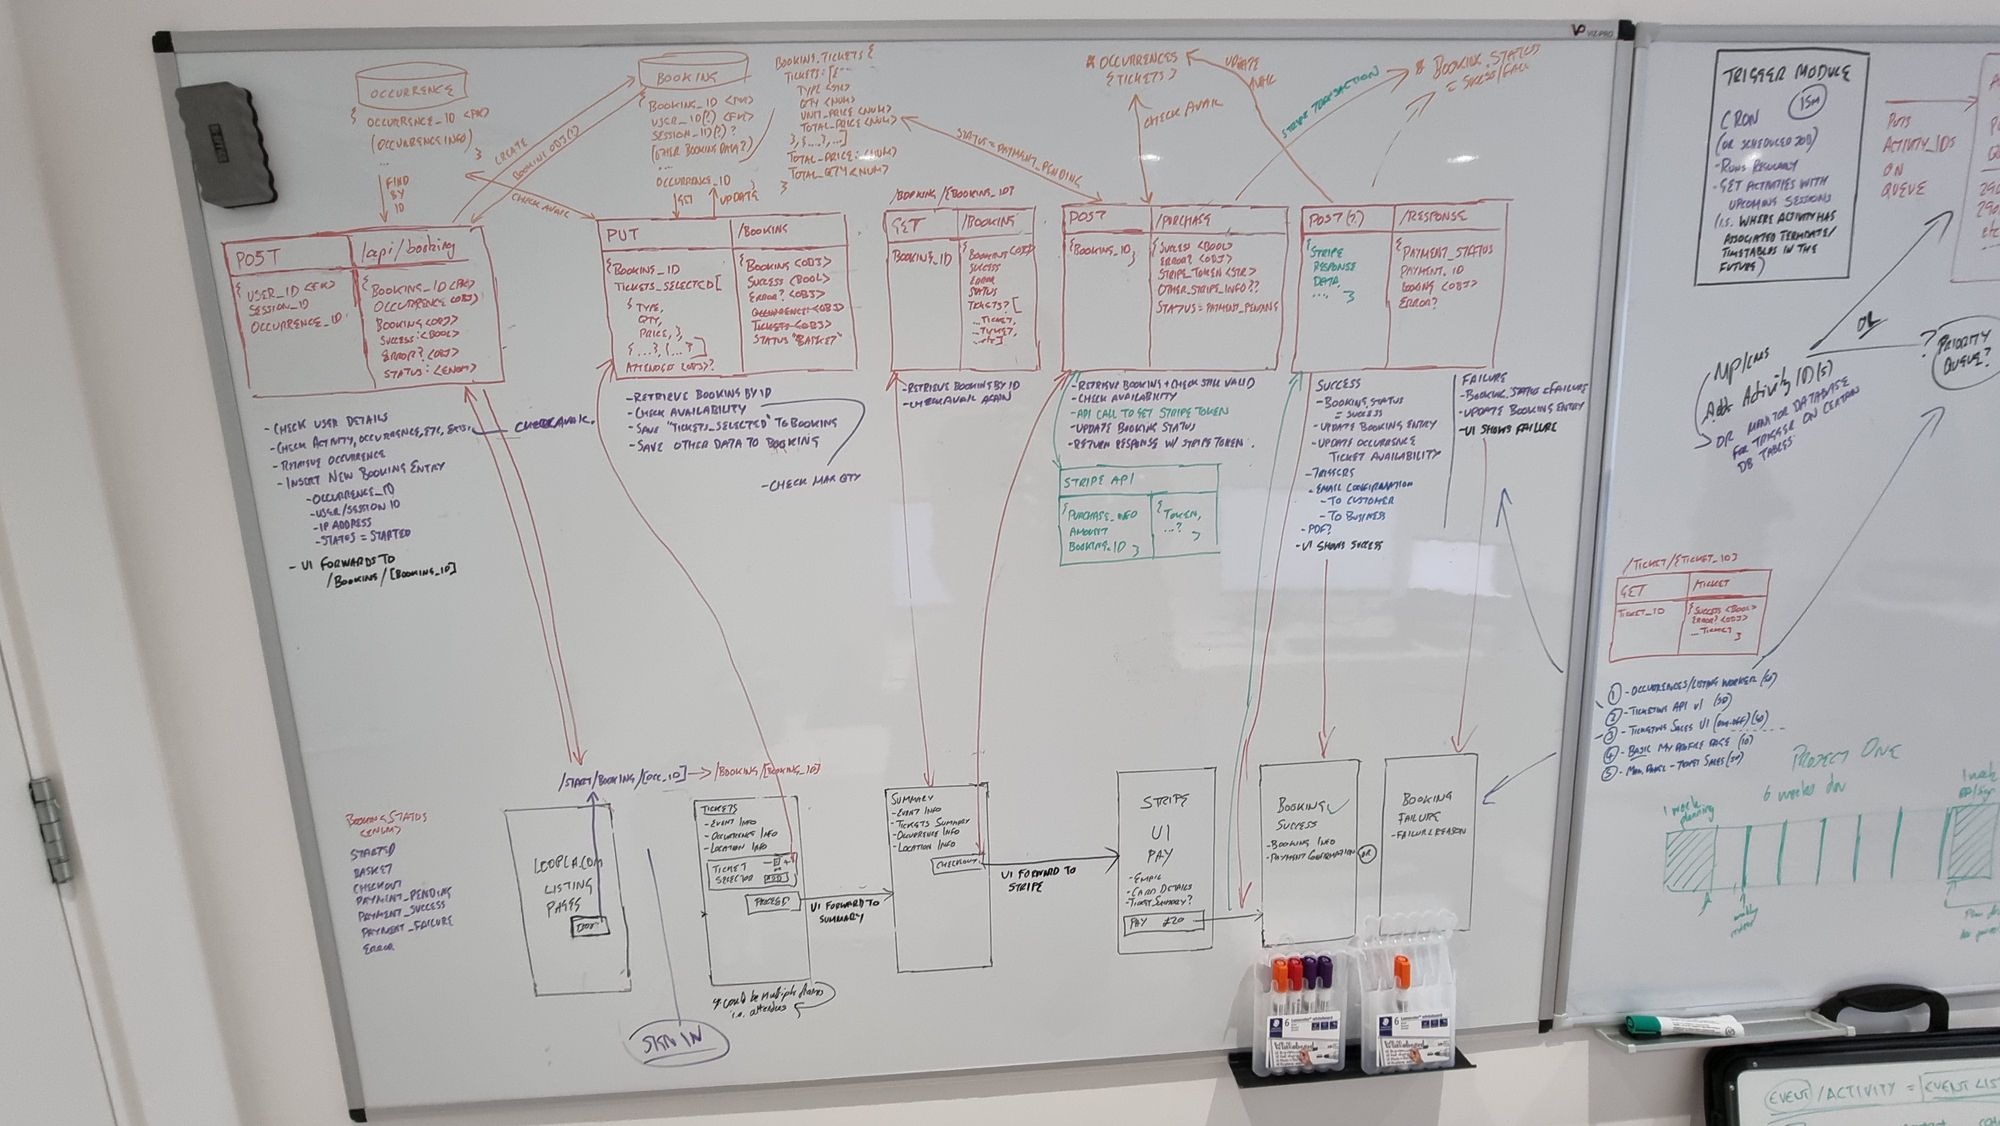 OCCURRENCE
{ OCCURRENCE_ID <PK>
(OCCURRENCE INFO)
...
}
FIND
BY
ID
CREATE
BOOKING OBJ(1)
CHECK AVAIL
BOOKING
{ BOOKING_ID <PK>
USER_ID(?) <FK>
SESSION_ID(?) ?
(OTHER BOOKING DATA?)
...
OCCURRENCE_ID }
GET
UPDATE
BOOKING.TICKETS {
TICKETS: [{--
TYPE <STR>
QTY <NUM>
UNIT_PRICE <NUM>
TOTAL_PRICE <NUM>
}, {....}, ...]
TOTAL_PRICE: <NUM>
TOTAL_QTY <NUM>
}
STATUS = PAYMENT_PENDING
* OCCURRENCES
{ TICKETS }
UPDATE
AVAIL
CHECK AVAIL
STRIPE TRANSACTION
* BOOKING.STATUS
= SUCCESS/FAIL
POST
/api/booking
{ USER_ID <FK>
SESSION_ID
OCCURRENCE_ID }
{ BOOKING_ID <PK>
OCCURRENCE <OBJ>
BOOKING <OBJ>
SUCCESS: <BOOL>
ERROR? <OBJ>
STATUS: <ENUM>
- CHECK USER DETAILS
- CHECK ACTIVITY, OCCURRENCE, ETC, EXIST.
CHECK AVAIL.
- RETRIEVE OCCURRENCE
- INSERT NEW BOOKING ENTRY
- OCCURRENCE_ID
- USER/SESSION ID
- IP ADDRESS
- STATUS = STARTED
- UI FORWARDS TO
/BOOKING/[BOOKING_ID]
PUT
/BOOKING
{ BOOKING_ID
TICKETS_SELECTED [
{ TYPE,
QTY,
PRICE, },
{....}, {...} ]
ATTENDEE <OBJ>?
{ BOOKING <OBJ>
SUCCESS <BOOL>
ERROR? <OBJ>
OCCURRENCE: <OBJ>
TICKETS <OBJ>
STATUS "BASKET"
- RETRIEVE BOOKING BY ID
- CHECK AVAILABILITY
- SAVE "TICKETS_SELECTED" TO BOOKING
- SAVE OTHER DATA TO BOOKING
- CHECK MAX QTY
/BOOKING/[BOOKING_ID]
GET
/BOOKING
BOOKING_ID
{ BOOKING <OBJ>
SUCCESS
ERROR
STATUS
TICKETS? [
...TICKET,
...TICKET,
...etc]
- RETRIEVE BOOKING BY ID
- CHECK AVAIL AGAIN
POST
/PURCHASE
{ BOOKING_ID }
{ SUCCESS <BOOL>
ERROR? <OBJ>
STRIPE_TOKEN <STR>
OTHER_STRIPE_INFO??
STATUS = PAYMENT_PENDING
- RETRIEVE BOOKING + CHECK STILL VALID
- CHECK AVAILABILITY
- API CALL TO GET STRIPE TOKEN
- UPDATE BOOKING STATUS
- RETURN RESPONSE W/ STRIPE TOKEN.
STRIPE API
{ PURCHASE_INFO
AMOUNT
BOOKING_ID }
{ TOKEN,
...?
}
POST(?)
/RESPONSE
{ STRIPE
RESPONSE
DATA
.... }
{ PAYMENT_STATUS
PAYMENT_ID
BOOKING <OBJ>
ERROR?
SUCCESS
- BOOKING.STATUS
= SUCCESS
- UPDATE BOOKING ENTRY
- UPDATE OCCURRENCE
TICKET AVAILABILITY
- TRIGGERS
- EMAIL CONFIRMATION
- TO CUSTOMER
- TO BUSINESS
- PDF?
- UI SHOWS SUCCESS
FAILURE
- BOOKING.STATUS = FAILURE
- UPDATE BOOKING ENTRY
- UI SHOWS FAILURE
/START/BOOKING/[OCC_ID] → /BOOKING/[BOOKING_ID]
BOOKING STATUS
<ENUM>
STARTED
BASKET
CHECKOUT
PAYMENT_PENDING
PAYMENT_SUCCESS
PAYMENT_FAILURE
ERROR
LOOPLA.COM
LISTING
PAGES
SIGN IN
TICKETS
- EVENT INFO
- OCCURRENCE INFO
- LOCATION INFO
TICKET
SELECTOR
ADD
PROCEED
* could be multiple
i.e. attendees
UI FORWARD TO
SUMMARY
SUMMARY
- EVENT INFO
- TICKETS SUMMARY
- OCCURRENCE INFO
- LOCATION INFO
CHECKOUT
UI FORWARD TO
STRIPE
STRIPE
UI
PAY
- EMAIL
- CARD DETAILS
- TICKET SUMMARY?
PAY £20
BOOKING
SUCCESS
- BOOKING INFO
- PAYMENT CONFIRMATION
OR
BOOKING
FAILURE
- FAILURE REASON
VIZ-PRO
TRIGGER MODULE
15m
CRON
(OR SCHEDULED JOB)
- RUNS REGULARLY
- GET ACTIVITIES WITH
UPCOMING SESSIONS
(I.E. WHERE ACTIVITY HAS
ASSOCIATED TERMDATE/
TIMETABLES IN THE
FUTURE)
PUTS
ACTIVITY_IDS
ON
QUEUE
290
290
etc
OR
? PRIORITY
QUEUE?
MP/CMS
Add Activity ID(s)
OR MONITOR DATABASE
FOR TRIGGER ON CERTAIN
DB TABLES.
/TICKET/[TICKET_ID]
GET
/TICKET
TICKET_ID
{ SUCCESS <BOOL>
ERROR? <OBJ>
...TICKET }
① - OCCURRENCES/LISTING WORKER (5D)
② - TICKETING API V1 (5D)
③ - TICKETING SALES UI
④ - BASIC MY PROFILE PAGE (1D)
⑤ - - TICKET SALES (5D)
PROJECT ONE
1 week
planning
6 weeks dev
1 week
EVENT/ACTIVITY = EVENT LIST
6 Lumocolor whiteboard
6 Lumocolor whiteboard